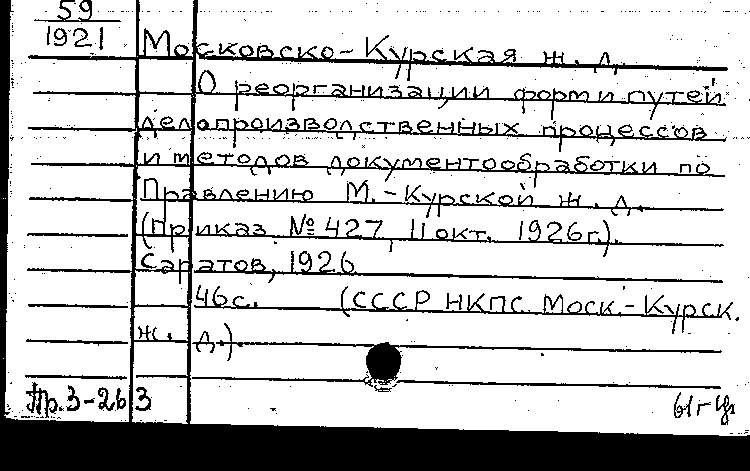 59
1921
Московско-Курская ж. д.
О реорганизации форм и путей
делопроизводственных процессов
и методов документообработки по
Правлению М.-Курской ж. д.
(Приказ №427, 11 окт. 1926г.).
Саратов, 1926
46с. (СССР НКПС Моск.-Курск.
ж. д.).
Пр.3-26 3
61г